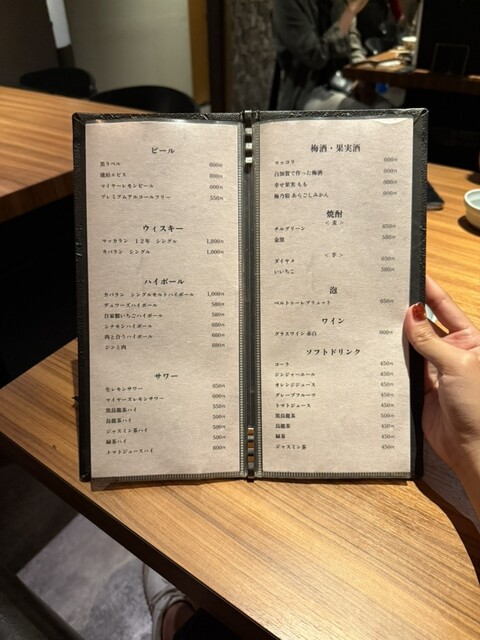 ビール
黒ラベル 600円
琥珀エビス 800円
マイヤーレモンビール 600円
プレミアムアルコールフリー 550円
ウィスキー
マッカラン 12年 シングル 1,800円
カバラン シングル 1,000円
ハイボール
カバラン シングルモルトハイボール 1,000円
デュワーズハイボール 580円
自家製いちごハイボール 580円
シナモンハイボール 680円
肉と合うハイボール 660円
ジンと肉 880円
サワー
生レモンサワー 650円
マイヤーズレモンサワー 600円
黒烏龍茶ハイ 550円
烏龍茶ハイ 500円
ジャスミン茶ハイ 500円
緑茶ハイ 500円
トマトジュースハイ 600円
梅酒・果実酒
マッコリ 600円
白加賀で作った梅酒 600円
幸せ果実 もも 600円
梅乃宿 あらごしみかん 600円
焼酎
＜ 麦 ＞
チルグリーン 650円
金黒 580円
＜ 芋 ＞
ダイヤメ 650円
いいちこ 580円
泡
ベルトーレブリュット 650円
ワイン
グラスワイン 赤白 600円
ソフトドリンク
コーラ 450円
ジンジャーエール 450円
オレンジジュース 450円
グレープフルーツ 450円
トマトジュース 450円
黒烏龍茶 500円
烏龍茶 450円
緑茶 450円
ジャスミン茶 450円